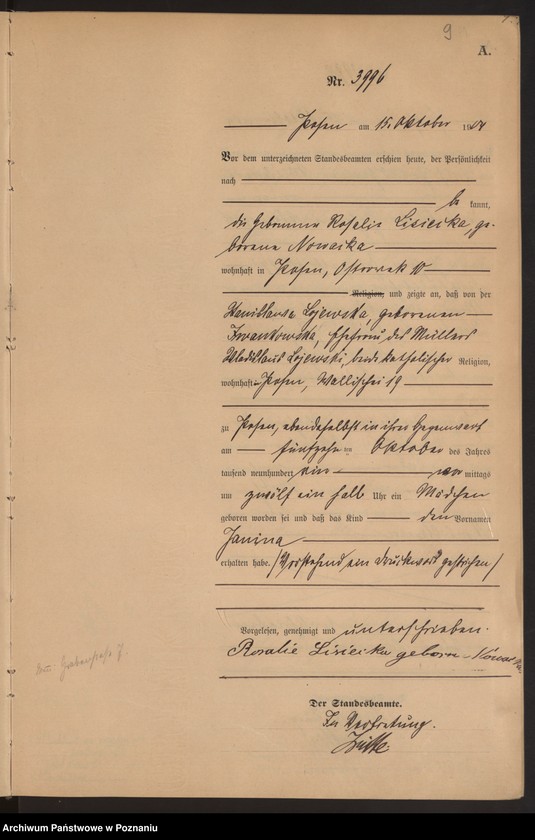 9
A.
Nr. 3996
Posen am 15. Oktober 1901
Vor dem unterzeichneten Standesbeamten erschien heute, der Persönlichkeit
nach
be kannt,
die Hebamme Rosalie Lisiecka, ge-
borene Nowacka
wohnhaft in Posen, Ostrowek 10
Religion, und zeigte an, daß von der
Stanislawa Lojewska, geborenen
Iwankowska, Ehefrau des Müllers
Wladislaus Lojewski, beide katholischer Religion,
wohnhaft Posen, Wallischei 19
zu Posen, ebendaselbst in ihrer Gegenwart
am fünfzehn ten Oktober des Jahres
tausend neunhundert ein vor mittags
um zwölf ein halb Uhr ein Mädchen
geboren worden sei und daß das Kind den Vornamen
Janina
erhalten habe. (Vorstehend ein Druckwort gestrichen)
Vorgelesen, genehmigt und unterschrieben.
Rosalie Lisiecka geborn Nowacka
Der Standesbeamte.
In Vertretung.
Archiwum Państwowe w Poznaniu